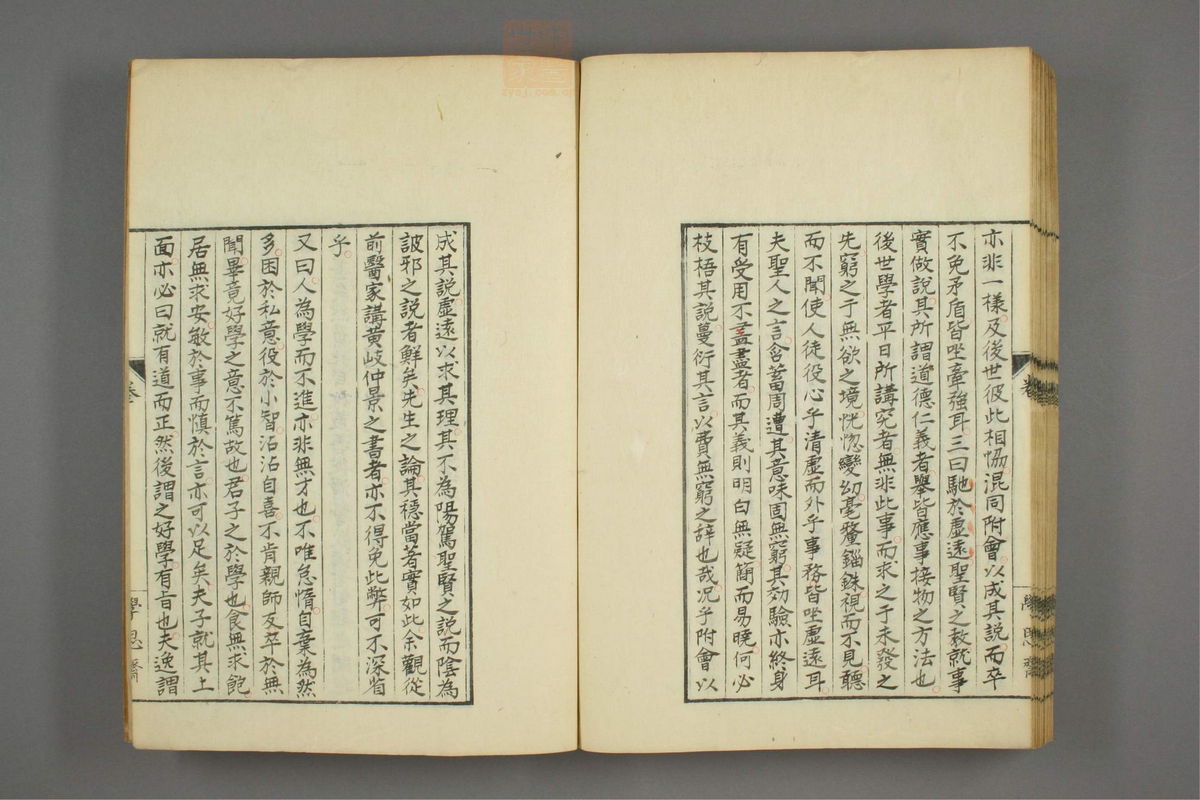 亦非一樣及後世彼此相恊混同附會以成其說而卒
不免矛盾皆坐牽強耳三曰馳於虛遠聖賢之教就事
實做說其所謂道德仁義者舉皆應事接物之方法也
後世學者平日所講究者無非此事而求之于未發之
先窮之于無欲之境恍惚變幻毫釐錙銖視而不見聽
而不聞使人徒役心乎清虛而外乎事務皆坐虛遠耳
夫聖人之言含蓄周遭其意味固無窮其効驗亦終身
有受用不盡者而其義則明白無疑簡而易曉何必
枝梧其說蔓衍其言以費無窮之辞也哉况乎附會以
成其說虛遠以求其理其不為陽駕聖賢之說而陰為
詖邪之說者鮮矣先生之論其穩當著實如此余觀從
前醫家講黃岐仲景之書者亦不得免此弊可不深省
乎
又曰人為學而不進亦非無才也不唯怠惰自棄為然
多困於私意役於小智沾沾自喜不肯親師友卒於無
聞畢竟好學之意不篤故也君子之於學也食無求飽
居無求安敏於事而慎於言亦可以足矣夫子就其上
面亦必曰就有道而正然後謂之好學有旨也夫逸謂
學思齋